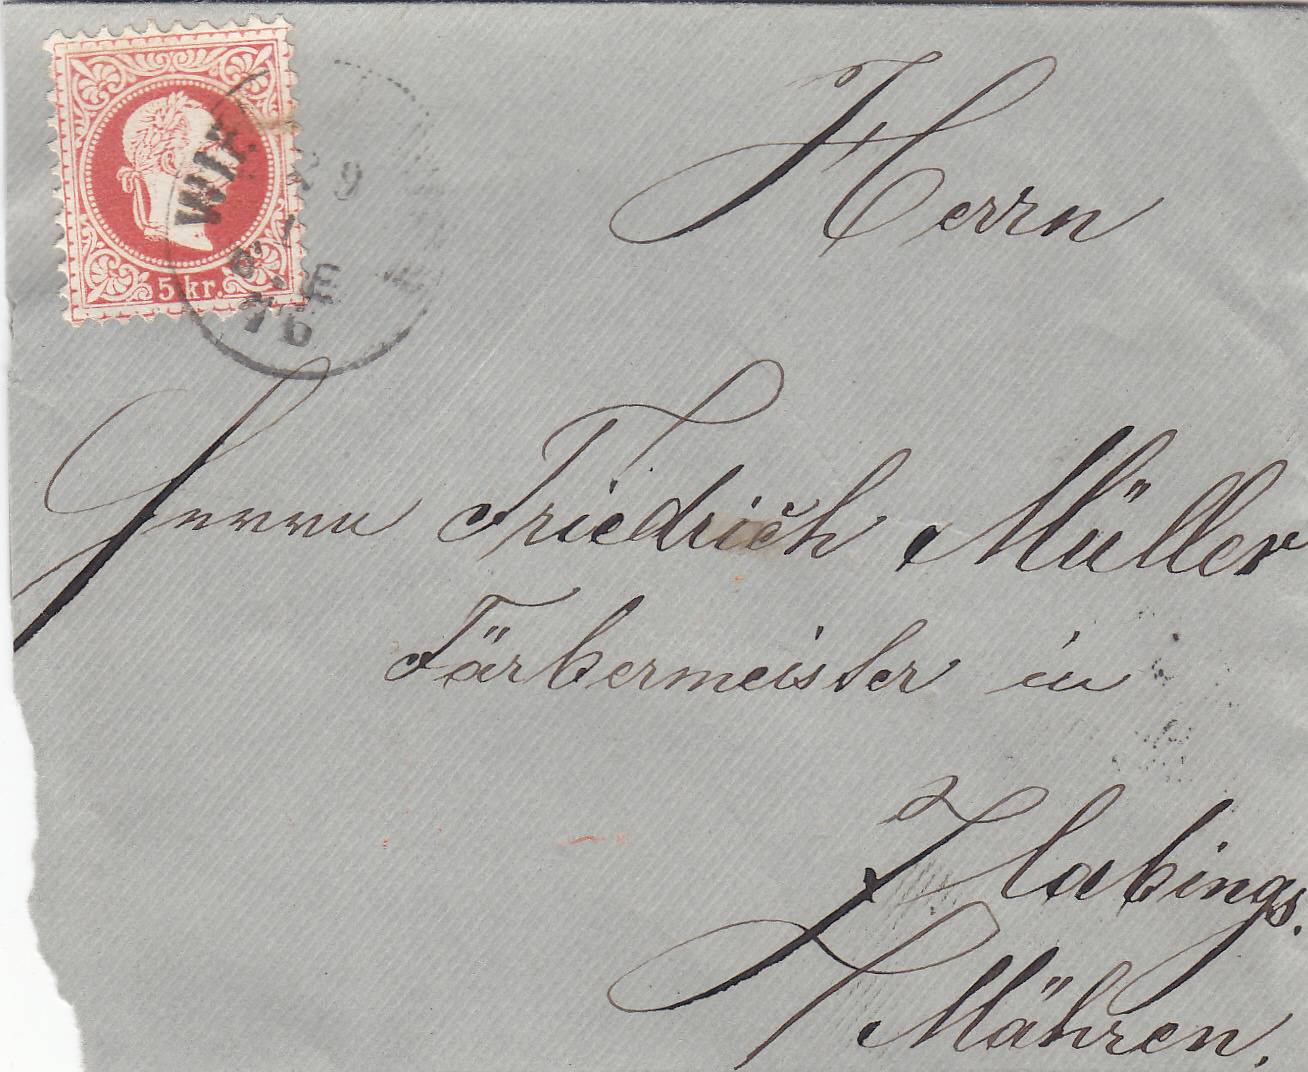 5 kr.
WIE
9
1
8.
E
76
Herrn
Herrn Friedrich Müller
Färbermeister in
Zlabings.
Mähren.